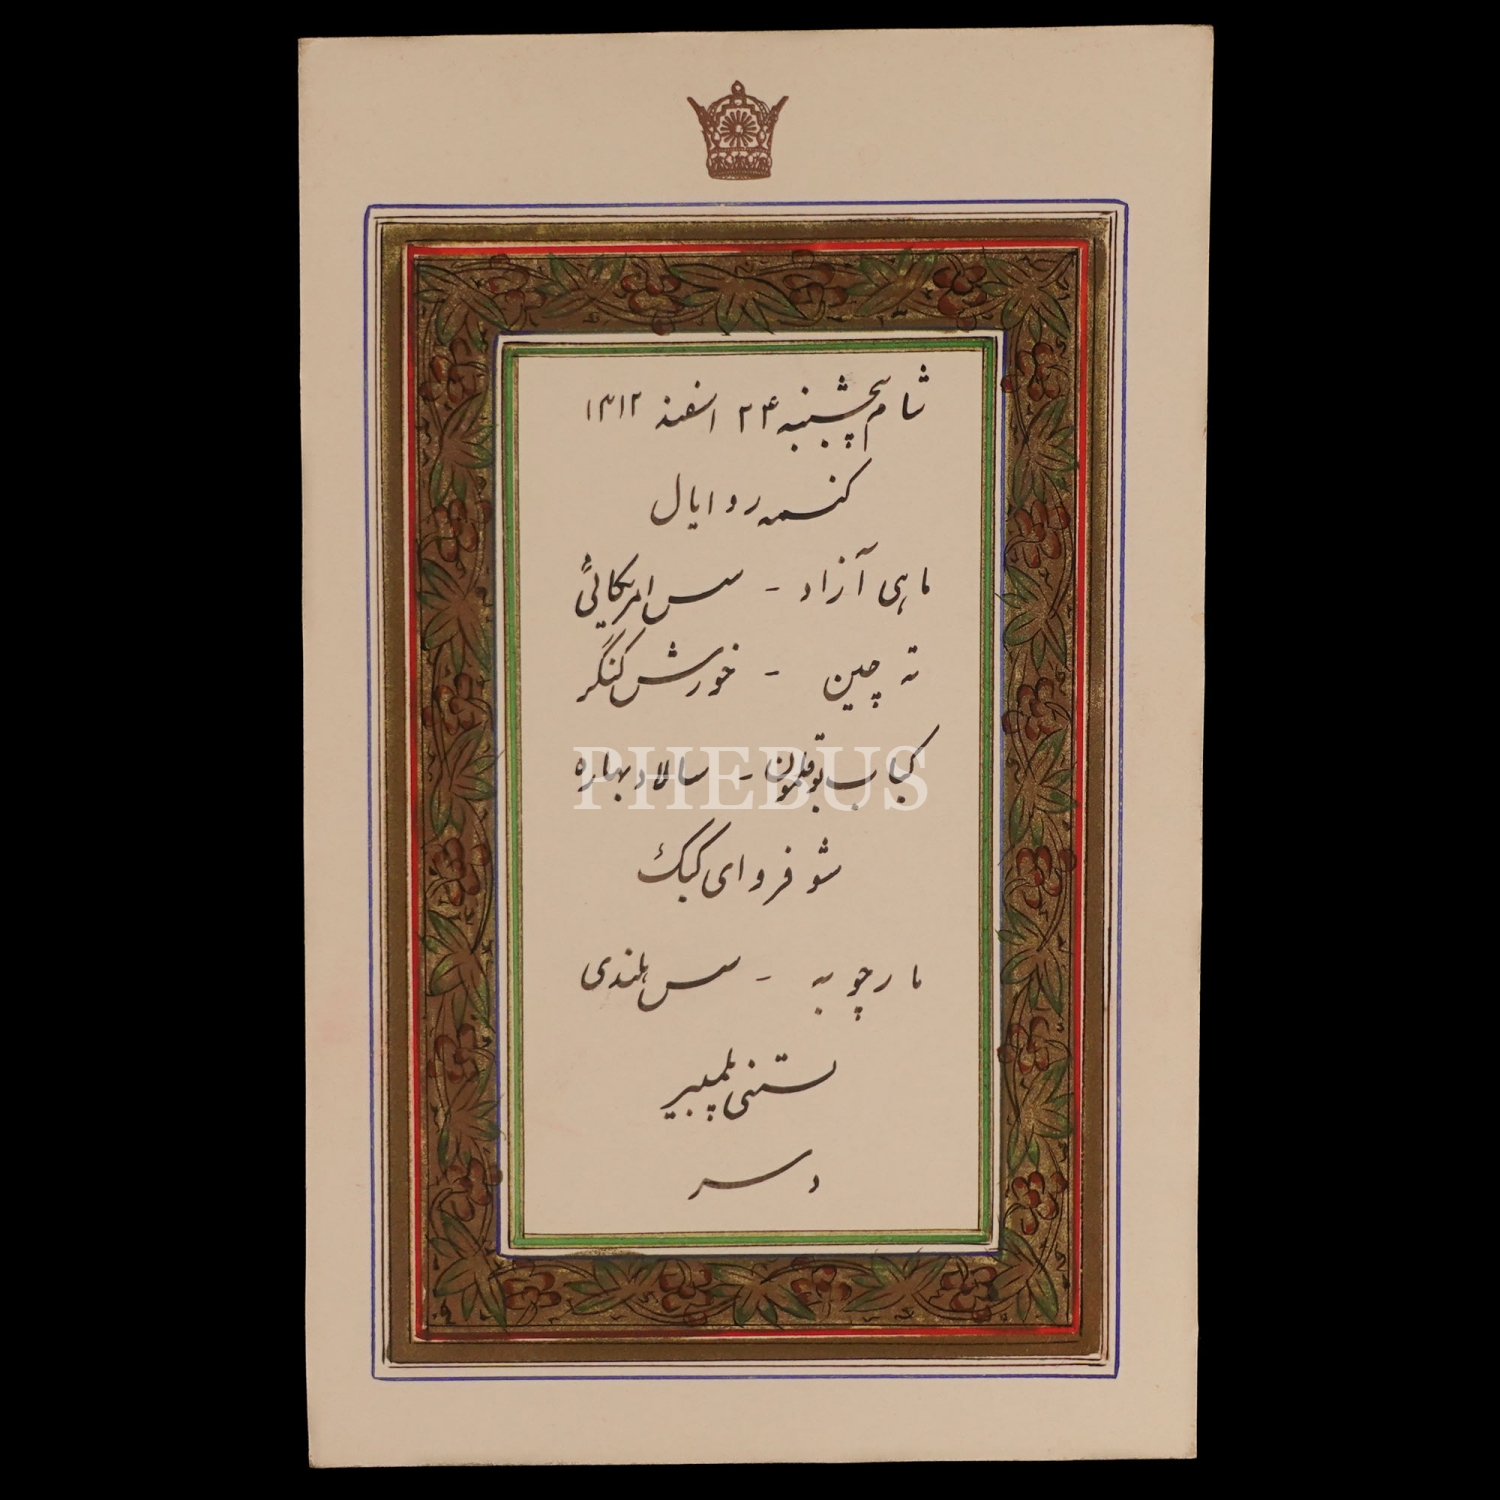 شام پنجشنبه ۲۴ اسفند ۱۳۱۲
کنسمه روایال
ماهی آزاد - سس امریکائی
ته چین - خورش کنگر
کباب بوقلمون - سالاد بهاره
شوفروای کبک
مارچوبه - سس هلندی
بستنی پلمبیر
دسر
PHEBUS